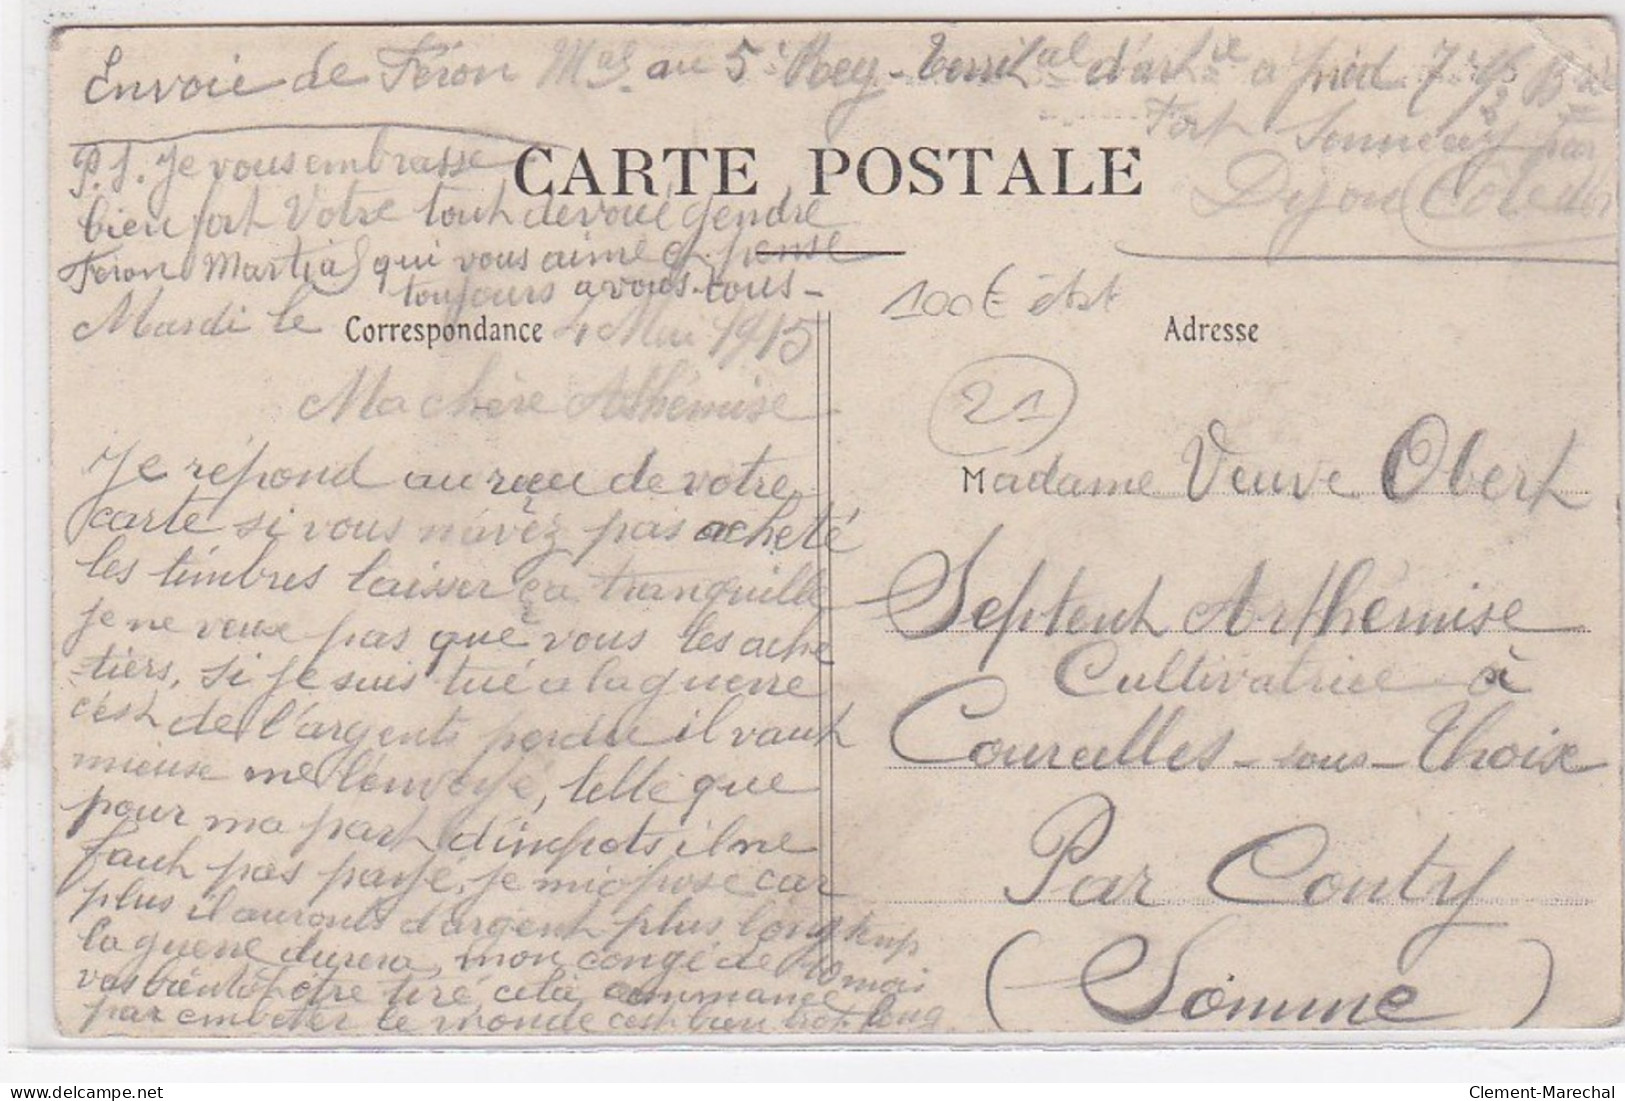 Envoie de Féron Mal au 5e Reg. Territal d'artie a pied 7e
Fort Sonnecay par
Dijon (Côte d'or
CARTE POSTALE
P.S. Je vous embrasse
bien fort Votre tout devoué gendre
Féron Martial qui vous aime et pense
toujours a vous tous-
Mardi le 4 Mai 1915
Correspondance
Ma chère Arthémise
Je répond au reçu de votre
carte si vous n'avez pas acheté
les timbres laisser ça tranquille
je ne veux pas que vous les ache
-tiers, si je suis tué a la guerre
c'est de l'argents perdu il vaut
mieuse me l'envoyé, telle que
pour ma part d'impots il ne
faut pas payé, je m'iopose car
plus il auronts d'argent plus longtemp
la guerre durera, mon congé de 10 mois
vas bientôt être tiré, cela commance
par embeter le monde c'est bien trop long
100€ état
21
Adresse
Madame Veuve Obert
Septent Arthémise
Cultivatrice à
Courcelles-sous-Thoix
Par Conty
(Somme)
Clement-Marechal